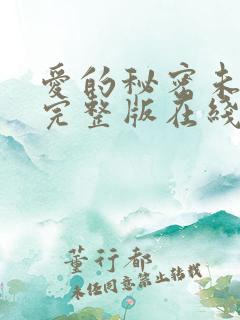 爱的秘密未
完整版在线
董行都
未经同意禁止转载